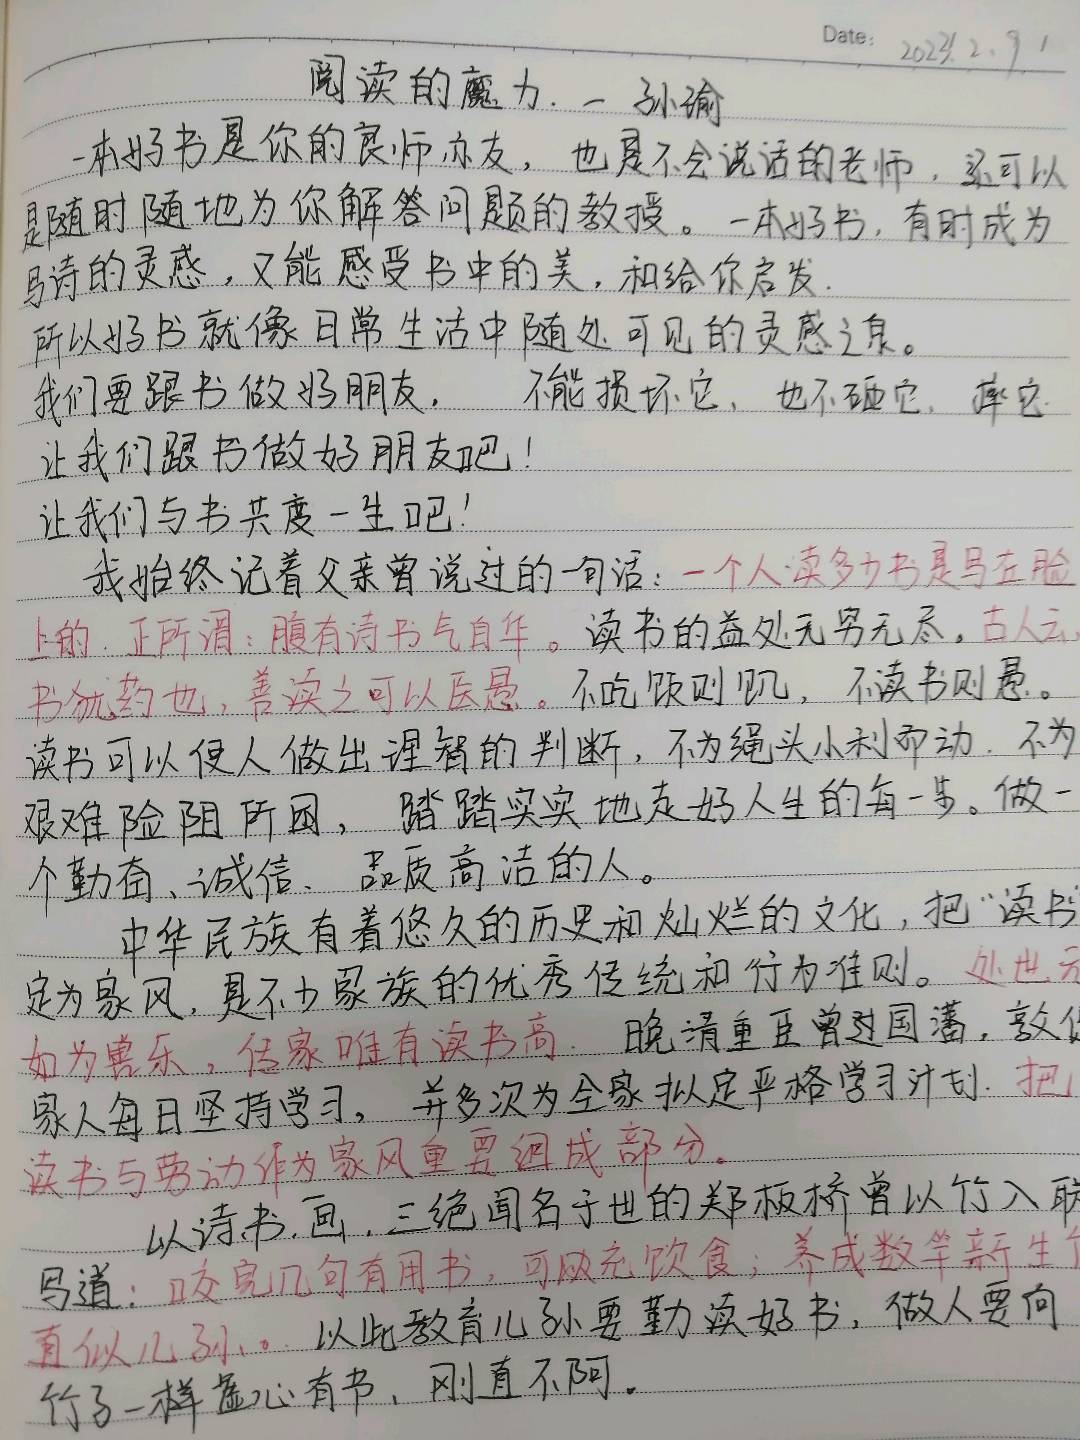 Date: 2023.2.9
阅读的魔力.一孙瑜
一本好书是你的良师亦友，也是不会说话的老师，还可以
是随时随地为你解答问题的教授。一本好书，有时成为
写诗的灵感，又能感受书中的美，和给你启发.
所以好书就像日常生活中随处可见的灵感之泉。
我们要跟书做好朋友， 不能损坏它、也不砸它、摔它.
让我们跟书做好朋友吧！
让我们与书共度一生吧！
我始终记着父亲曾说过的一句话：一个人读多少书是写在脸
上的.正所谓：腹有诗书气自华。读书的益处无穷无尽。古人云，
书犹药也，善读之可以医愚。不吃饭则饥，不读书则愚。
读书可以使人做出理智的判断，不为绳头小利而动.不为
艰难险阻所困，踏踏实实地走好人生的每一步。做一
个勤奋、诚信、品质高洁的人。
中华民族有着悠久的历史和灿烂的文化，把“读书”
定为家风，是不少家族的优秀传统和行为准则。处世无
如为善乐，传家唯有读书高.晚清重臣曾国藩，敦促
家人每日坚持学习，并多次为全家拟定严格学习计划.把
读书与劳动作为家风重要组成部分。
以诗.书.画.三绝闻名于世的郑板桥曾以竹入联
写道：咬完几句有用书，可以充饮食；养成数竿新生竹
直似儿孙。以此教育儿孙要勤读好书，做人要向
竹子一样虚心有书、刚直不阿。